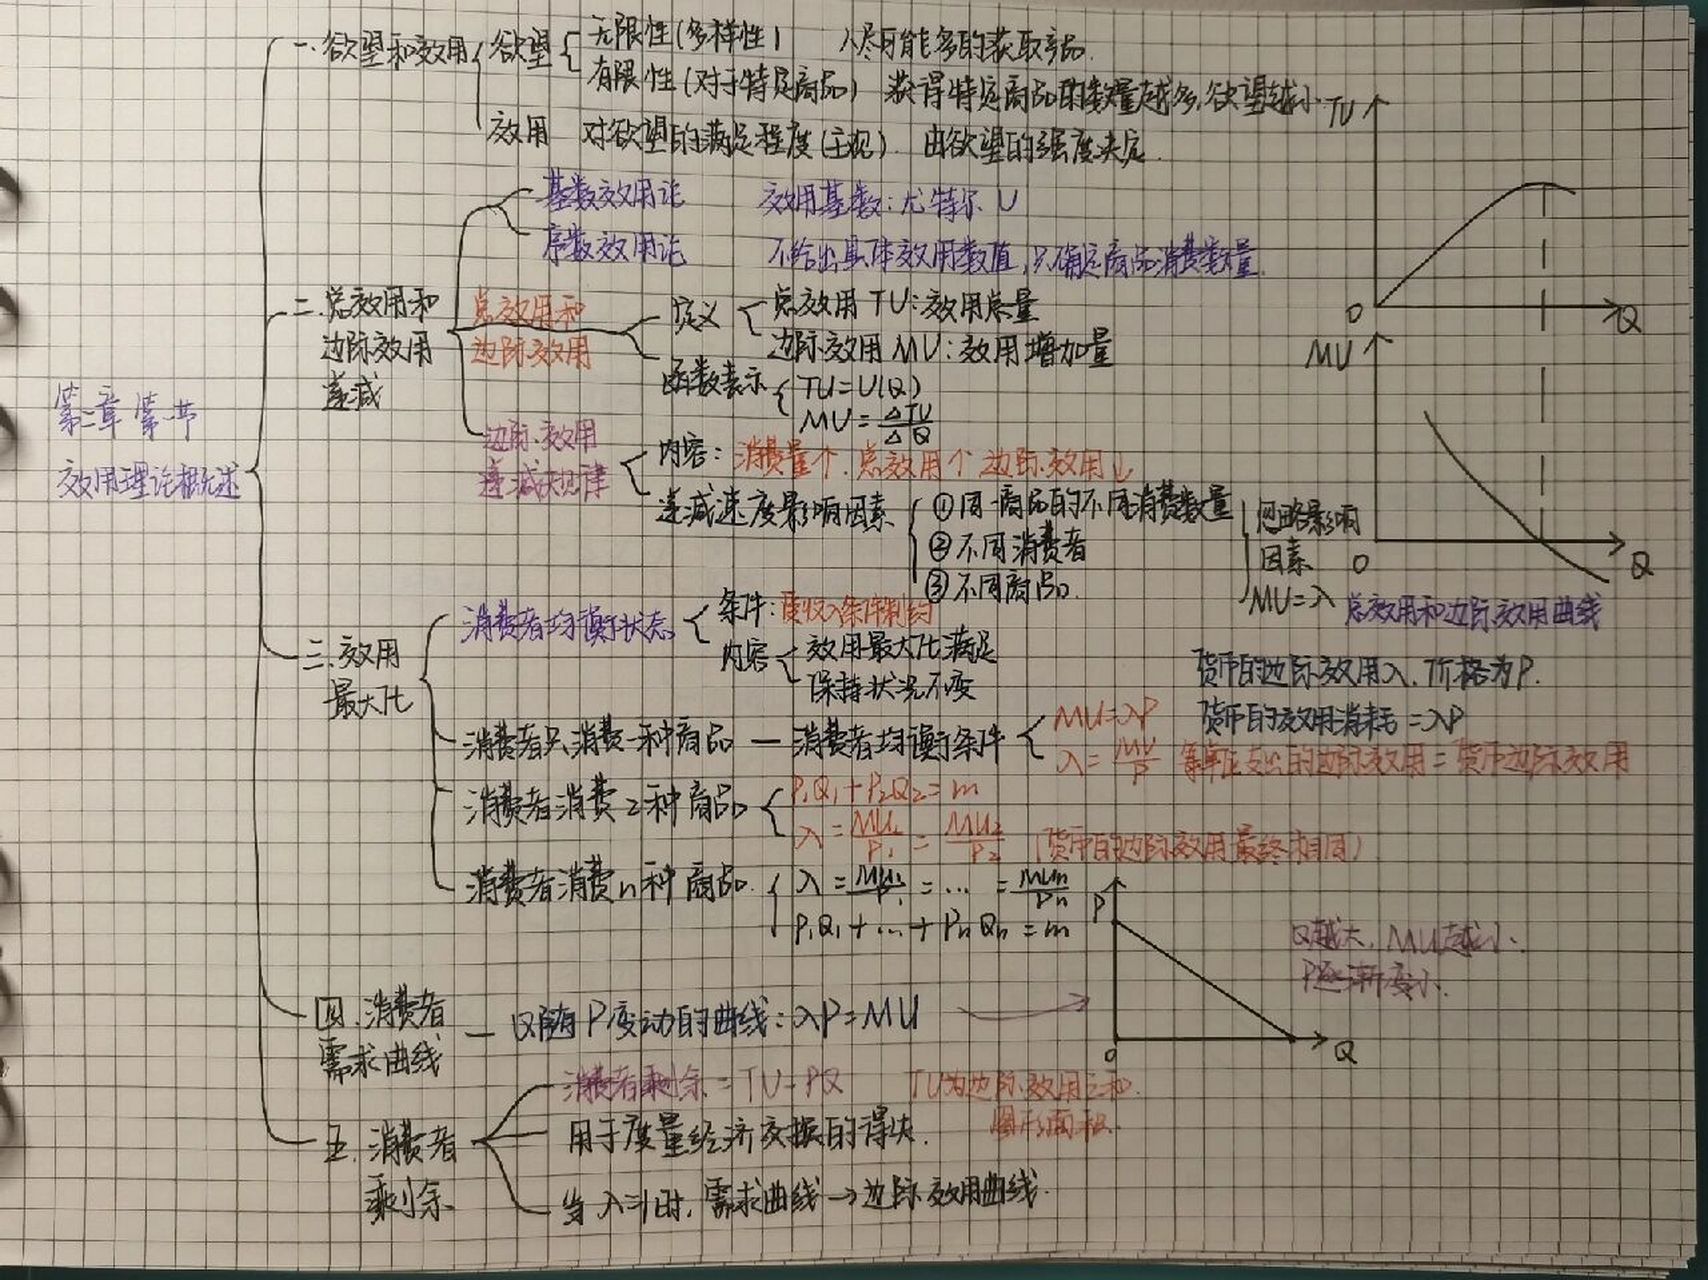 第二章 第一节
效用理论概述
一.欲望和效用
欲望
无限性(多样性) 人尽可能多的获取商品.
有限性(对于特定商品) 获得特定商品的数量越多,欲望越小.
效用 对欲望的满足程度(主观). 由欲望的强度决定.
二.总效用和
边际效用
递减
基数效用论 效用基数:尤特尔 U
序数效用论 不给出具体效用数值,只确定商品消费数量.
总效用和
边际效用
定义
总效用 TU:效用总量
边际效用 MU:效用增加量
函数表示
TU=U(Q)
MU=ΔTU/ΔQ
边际效用
递减规律
内容:消费量↑.总效用↑ 边际效用↓
递减速度影响因素
①同一商品的不同消费数量
②不同消费者
③不同商品.
忽略影响
因素
MU=λ
TU
O
Q
MU
O
Q
总效用和边际效用曲线
三.效用
最大化
消费者均衡状态
条件:受收入条件制约
内容
效用最大化满足
保持状况不变
货币的边际效用λ.价格为P.
货币的效用消耗=λP
消费者只消费一种商品 — 消费者均衡条件
MU=λP
λ=MU/P 每单位支出的边际效用=货币边际效用
消费者消费2种商品
P₁Q₁+P₂Q₂=m
λ=MU₁/P₁=MU₂/P₂ (货币的边际效用最终相同)
消费者消费n种商品.
λ=MU₁/P₁=...=MUn/Pn
P₁Q₁+...+PnQn=m
P
O
Q
Q越大,MU越小.
P逐渐变小.
四.消费者
需求曲线
— Q随P变动的曲线:λP=MU
五.消费者
剩余
消费者剩余=TU-PQ TU为边际效用之和.
图形面积.
用于度量经济交换的得失.
当λ=1时,需求曲线→边际效用曲线.